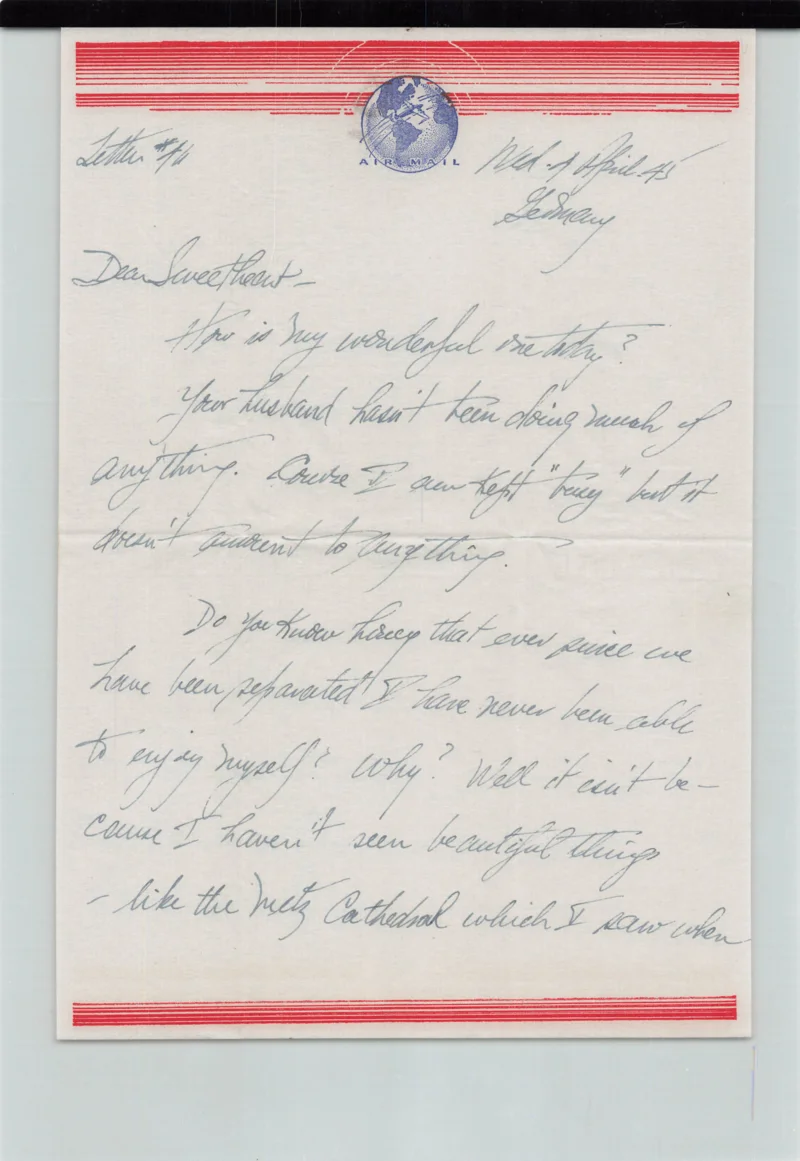 Letter #
AIR MAIL
Wed. 4 April 45
Germany
Dear Sweetheart –
How is my wonderful one today?
Your husband hasn't been doing much of
anything. Course I am kept "busy" but it
doesn't amount to anything.
Do you know honey that ever since we
have been separated I have never been able
to enjoy myself? Why? Well it isn't be–
cause I haven't seen beautiful things
– like the Metz Cathedral which I saw when